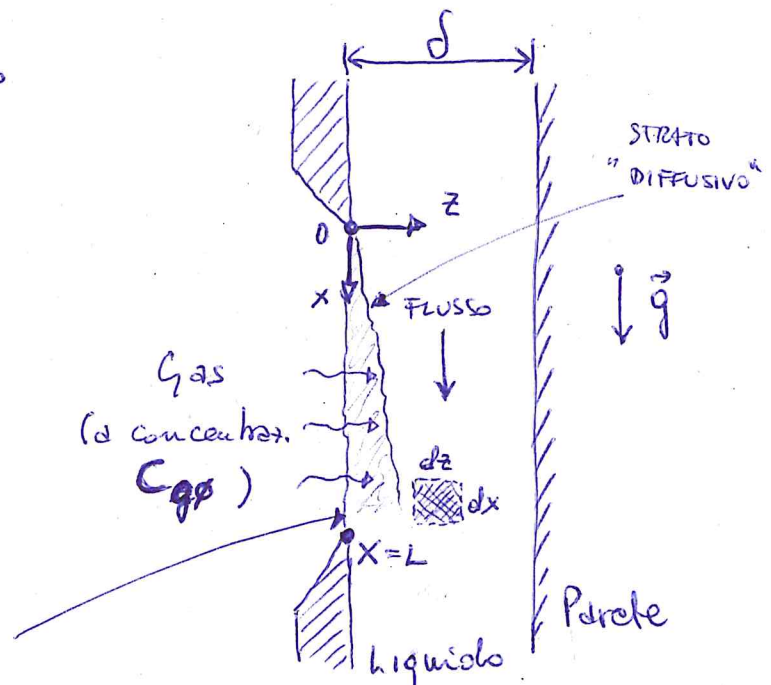 δ
STRATO
"DIFFUSIVO"
z
0
x
FLUSSO
g
Gas
(a concentraz.
Cgø)
dz
dx
x=L
Parete
Liquido